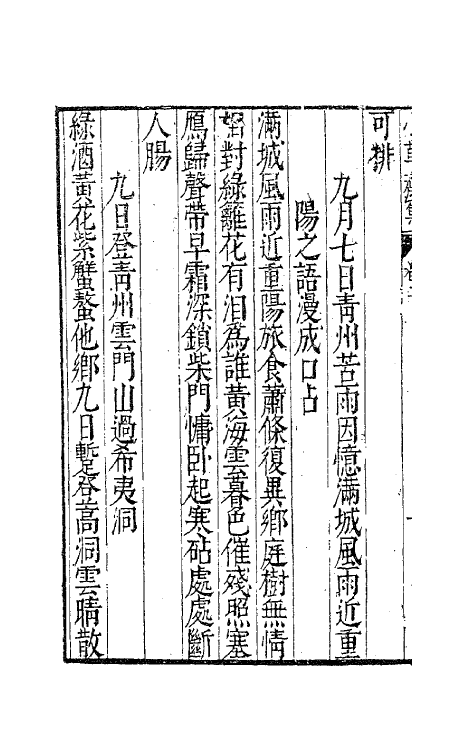 可排
九月七日青州苦雨因憶滿城風雨近重
陽之語漫成口占
滿城風雨近重陽旅食蕭條復異鄉庭樹無情
對綠籬花有淚爲誰黃海雲暮色催殘照塞
鴈歸聲帶早霜深鎖柴門慵臥起寒砧處處斷
人腸
九日登青州雲門山過希夷洞
綠酒黃花紫蟹螯他鄉九日蹔登高洞雲晴散